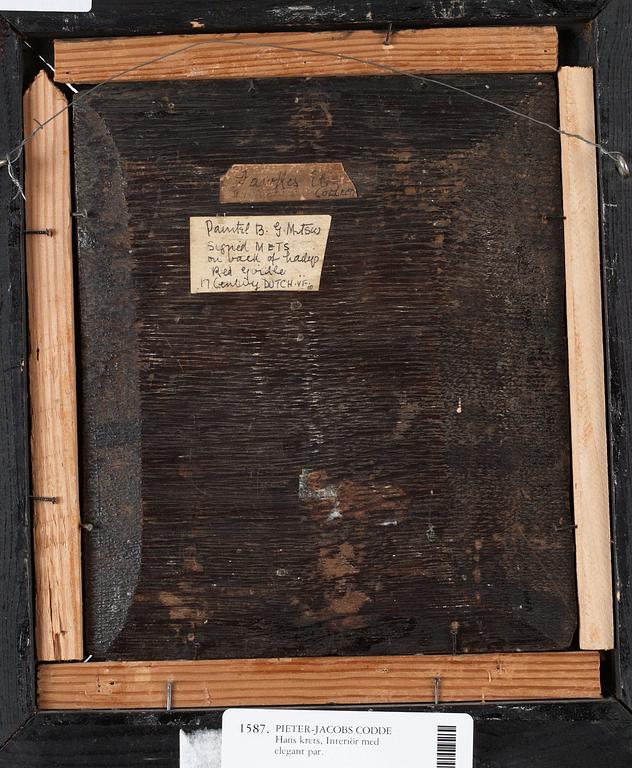 Painted B. G. Metsu
Signed METS
on back of Ladys
Red Girdle
17 Century DUTCH
1587. PIETER-JACOBS CODDE
Hans krets, Interiör med
elegant par.